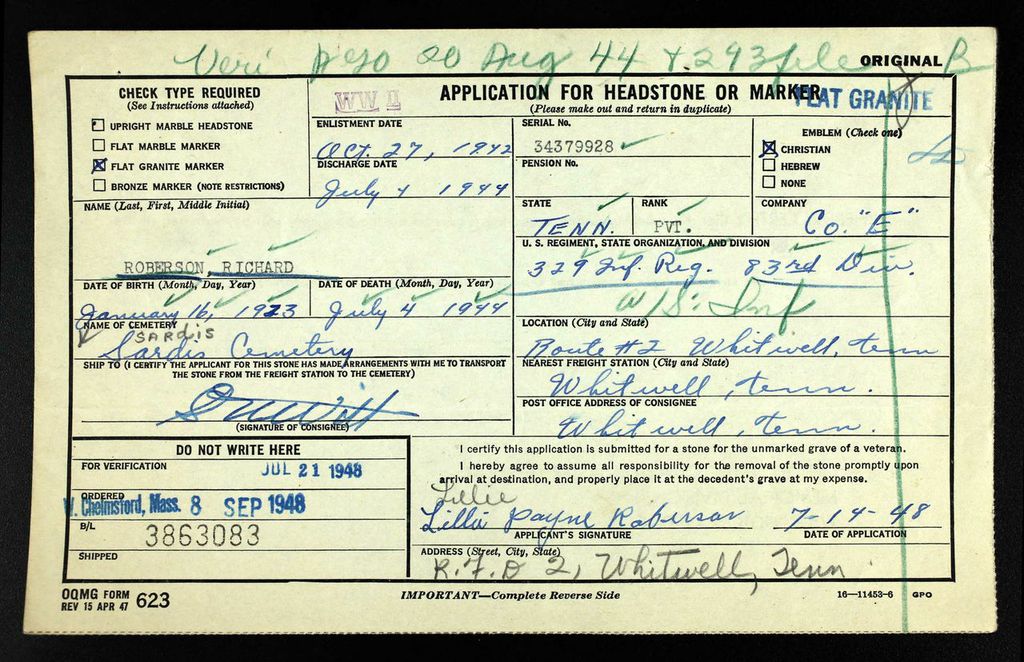 Veri Aug 44
ORIGINAL B
CHECK TYPE REQUIRED
(See Instructions attached)
UPRIGHT MARBLE HEADSTONE
FLAT MARBLE MARKER
FLAT GRANITE MARKER
BRONZE MARKER (NOTE RESTRICTIONS)
WW II
APPLICATION FOR HEADSTONE OR MARKER
(Please make out and return in duplicate)
FLAT GRANITE
ENLISTMENT DATE
Oct. 27, 1942
DISCHARGE DATE
July 4 1944
SERIAL No.
34379928
PENSION No.
EMBLEM (Check one)
CHRISTIAN
HEBREW
NONE
STATE
TENN.
RANK
PVT.
COMPANY
Co. "E"
NAME (Last, First, Middle Initial)
ROBERSON, RICHARD
U. S. REGIMENT, STATE ORGANIZATION, AND DIVISION
329 Inf. Reg. 83rd Div.
W/S: Inf
DATE OF BIRTH (Month, Day, Year)
January 16, 1923
DATE OF DEATH (Month, Day, Year)
July 4 1944
NAME OF CEMETERY
SARDIS
Sardis Cemetery
LOCATION (City and State)
Route #2 Whitwell, Tenn
SHIP TO (I CERTIFY THE APPLICANT FOR THIS STONE HAS MADE ARRANGEMENTS WITH ME TO TRANSPORT
THE STONE FROM THE FREIGHT STATION TO THE CEMETERY)
(SIGNATURE OF CONSIGNEE)
NEAREST FREIGHT STATION (City and State)
Whitwell, Tenn.
POST OFFICE ADDRESS OF CONSIGNEE
Whitwell, Tenn.
DO NOT WRITE HERE
FOR VERIFICATION
JUL 21 1948
ORDERED
W. Chelmsford, Mass. 8 SEP 1948
B/L
3863083
SHIPPED
I certify this application is submitted for a stone for the unmarked grave of a veteran.
I hereby agree to assume all responsibility for the removal of the stone promptly upon
arrival at destination, and properly place it at the decedent's grave at my expense.
Lillie
Lillie Payne Roberson 7-14-48
APPLICANT'S SIGNATURE
DATE OF APPLICATION
ADDRESS (Street, City, State)
R.F.D 2, Whitwell, Tenn
OQMG FORM
REV 15 APR 47 623
IMPORTANT—Complete Reverse Side
16—11453-6 GPO